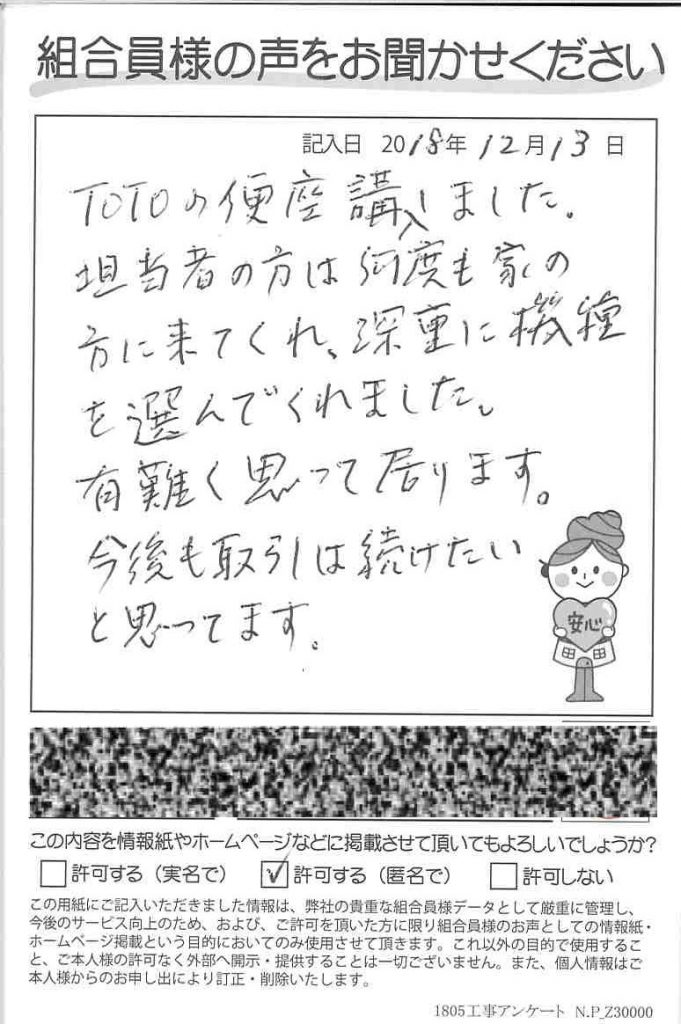 組合員様の声をお聞かせください
記入日 2018年12月13日
TOTOの便座講入しました。
担当者の方は何度も家の
方に来てくれ、深重に機種
を選んでくれました。
有難く思って居ります。
今後も取引は続けたい
と思ってます。
安心
この内容を情報紙やホームページなどに掲載させて頂いてもよろしいでしょうか?
許可する(実名で) ✓許可する(匿名で) 許可しない
この用紙にご記入いただきました情報は、弊社の貴重な組合員様データとして厳重に管理し、
今後のサービス向上のため、および、ご許可を頂いた方に限り組合員様のお声としての情報紙・
ホームページ掲載という目的においてのみ使用させて頂きます。これ以外の目的で使用するこ
と、ご本人様の許可なく外部へ開示・提供することは一切ございません。また、個人情報はご
本人様からのお申し出により訂正・削除いたします。
1805工事アンケート N.P_Z30000